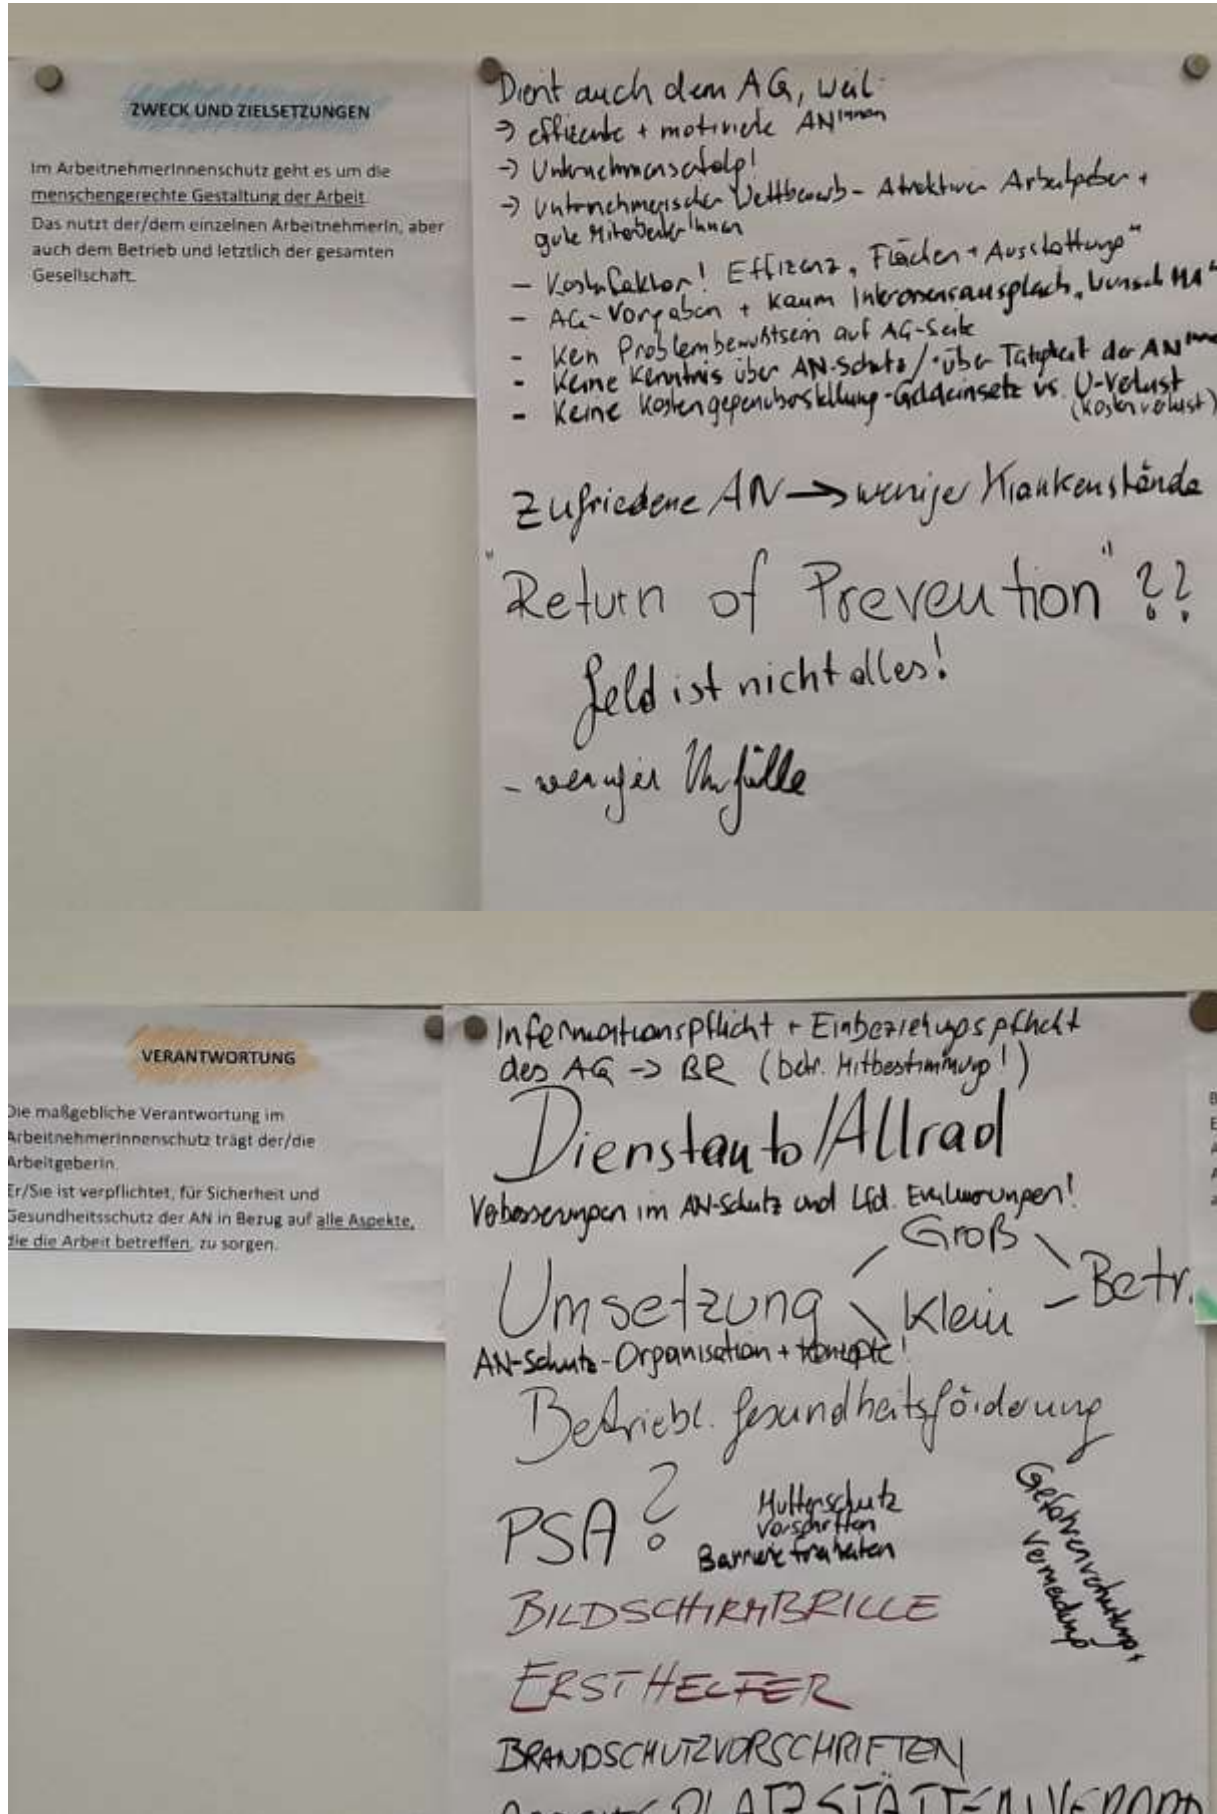 ZWECK UND ZIELSETZUNGEN
Im ArbeitnehmerInnenschutz geht es um die
menschengerechte Gestaltung der Arbeit.
Das nutzt der/dem einzelnen ArbeitnehmerIn, aber
auch dem Betrieb und letztlich der gesamten
Gesellschaft.
Dient auch dem AG, weil:
→ effiziente + motivierte ANInnen
→ Unternehmenserfolg!
→ Unternehmerischer Wettbewerb - Atraktiver Arbeitgeber +
gute MitarbeiterInnen
- Kostenfaktor! Effizienz, Flächen + Ausstattung"
- AG-Vorgaben + kaum "Wunsch MA"
- Kein Problembewußtsein auf AG-Seite
- Keine Kenntnis über AN-Schutz / über Tätigkeit der ANInnen
- Keine Kostengegenüberstellung - Geldeinsatz vs. U-Verlust
(Kostenverlust)
Zufriedene AN → weniger Krankenstände
"Return of Prevention" ??
Geld ist nicht alles!
- weniger Unfälle
VERANTWORTUNG
Die maßgebliche Verantwortung im
ArbeitnehmerInnenschutz trägt der/die
ArbeitgeberIn.
Er/Sie ist verpflichtet, für Sicherheit und
Gesundheitsschutz der AN in Bezug auf alle Aspekte,
die die Arbeit betreffen, zu sorgen.
Informationspflicht + Einbeziehungspflicht
des AG → BR (betr. Mitbestimmung!)
Dienstauto/Allrad
Verbesserungen im AN-Schutz und Lfd. Evaluierungen!
Groß
Umsetzung Betr.
Klein
AN-Schutz-Organisation + Konzepte!
Betriebl. Gesundheitsförderung
PSA?
Mutterschutz
Vorschriften
Barrierefreiheiten
Gefahrenverhütung +
Vermeidung
BILDSCHIRMBRILLE
ERSTHELFER
BRANDSCHUTZVORSCHRIFTEN